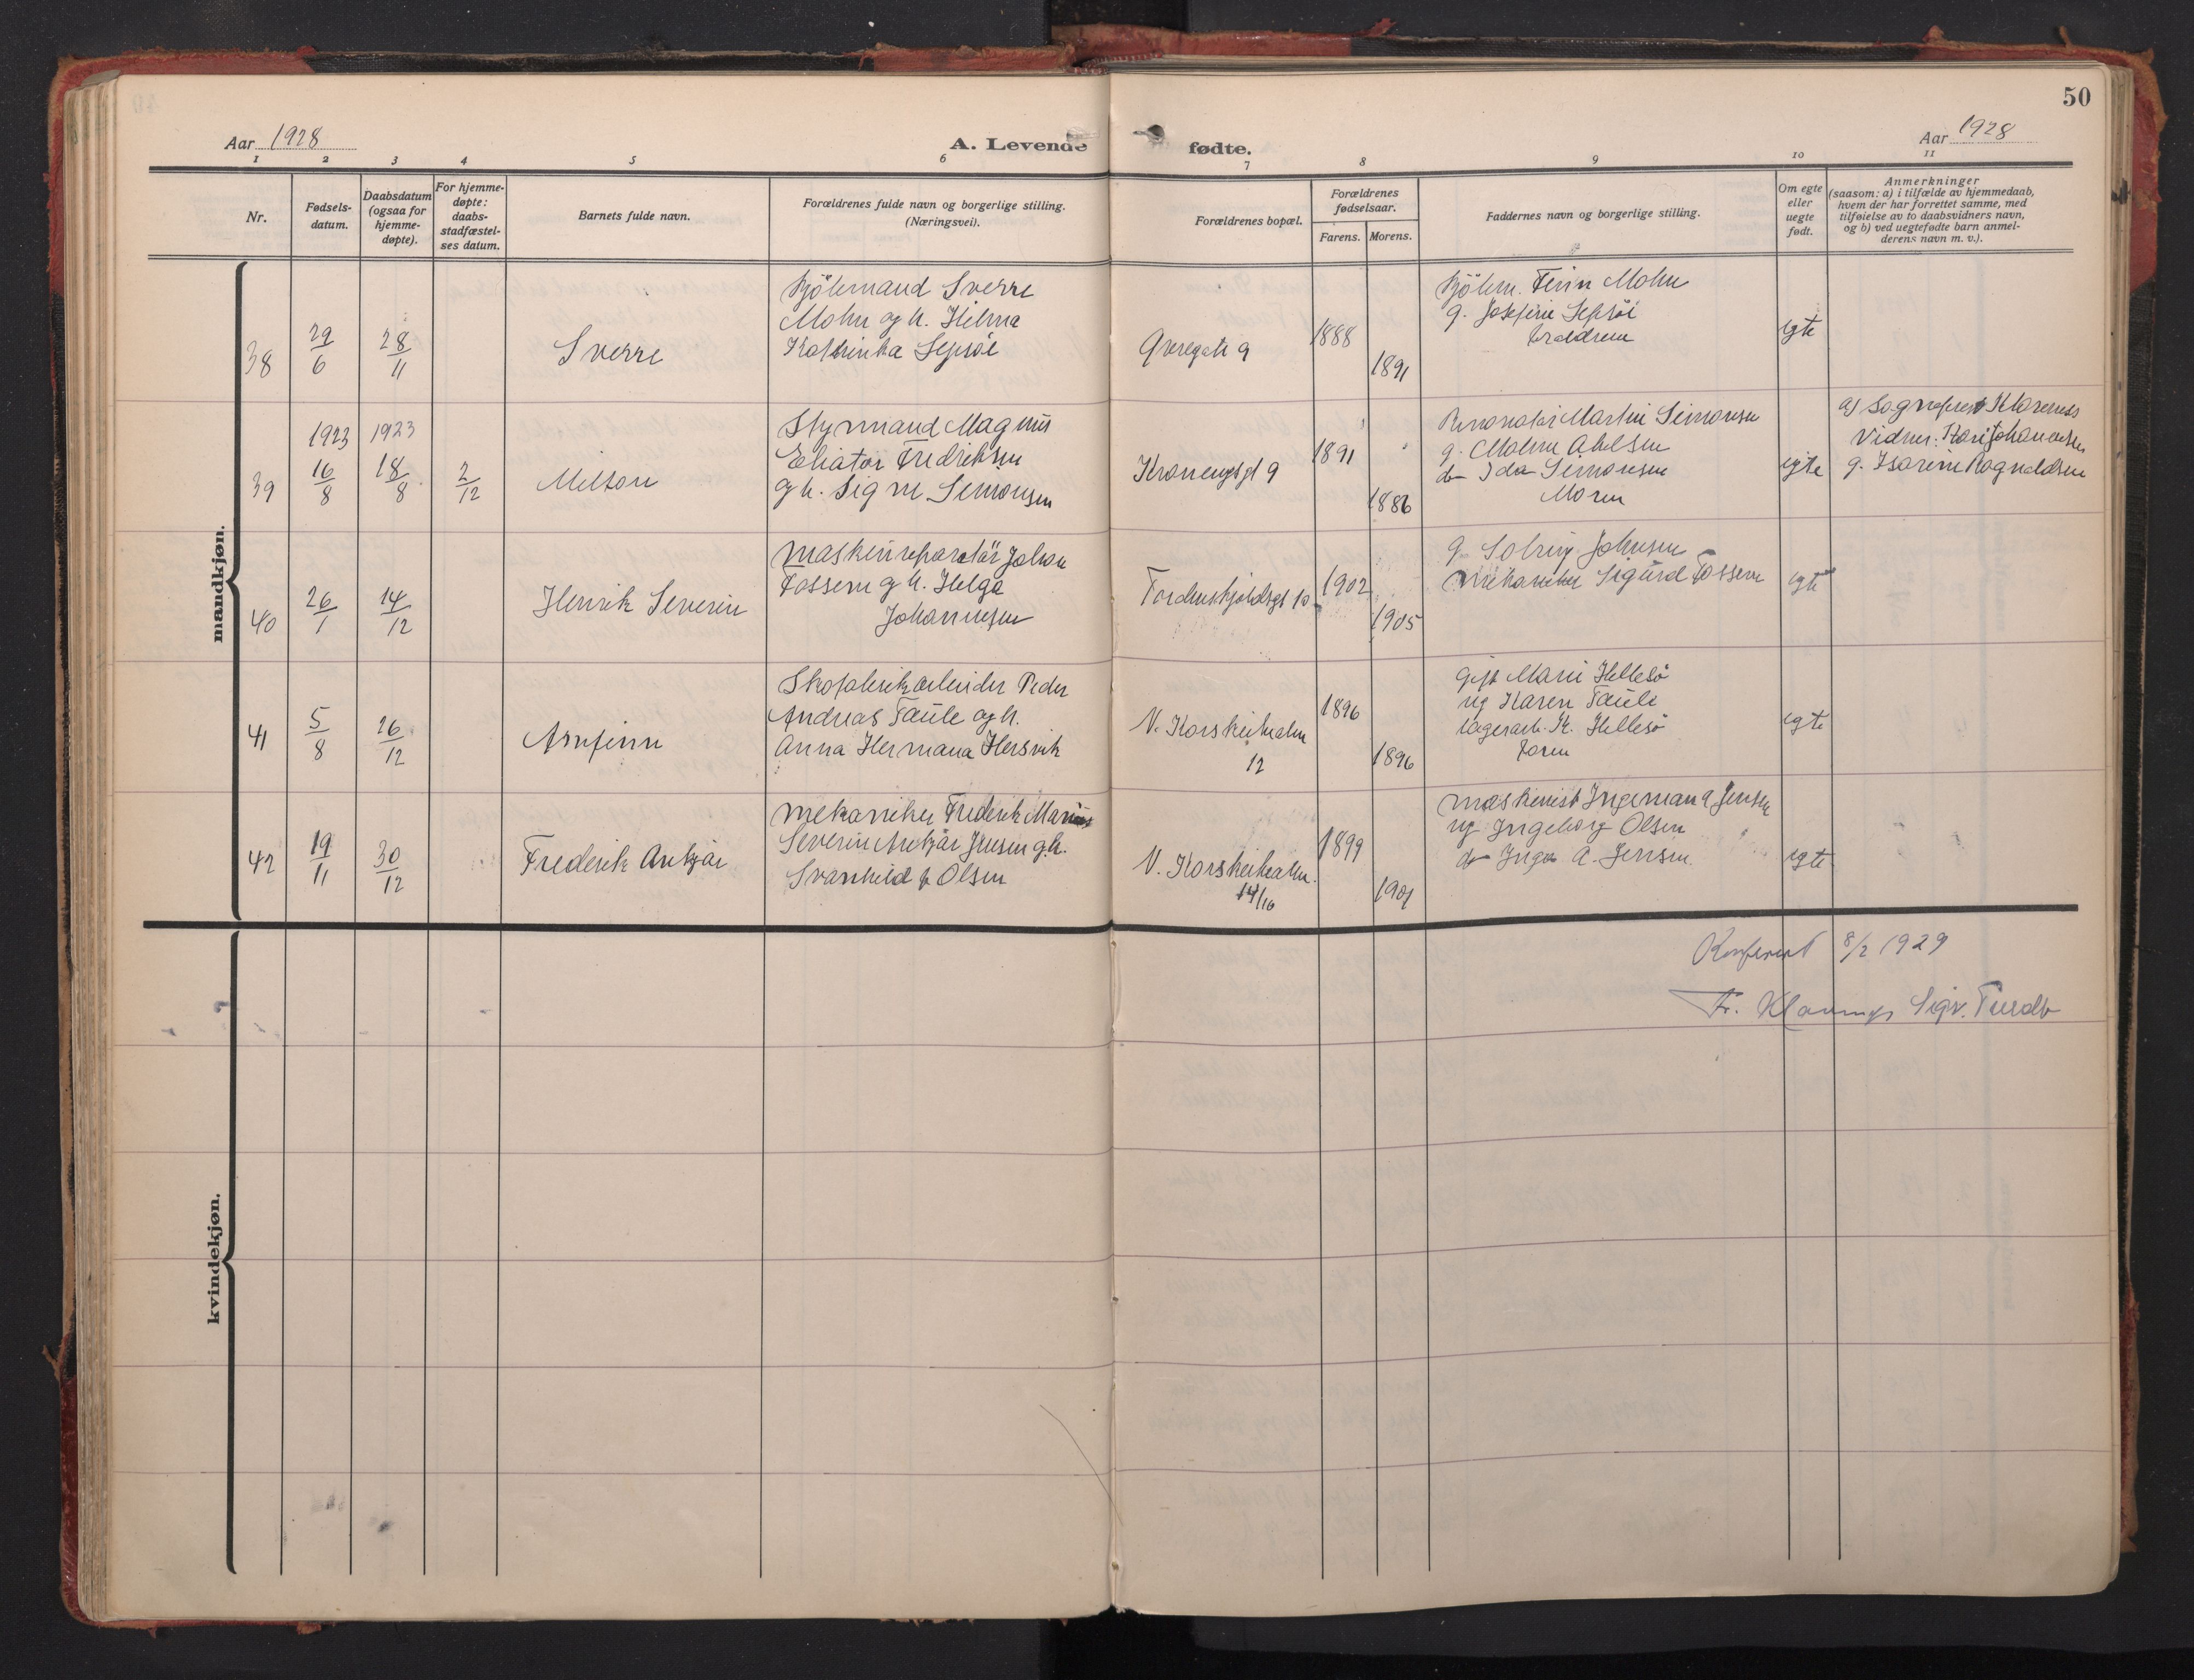 50
Aar 1928
A. Levende fødte.
Aar 1928
1 2 3 4 5 6 7 8 9 10 11
Nr.
Fødsels-
datum.
Daabsdatum
(ogsaa for
hjemme-
døpte).
For hjemme-
døpte:
daabs-
stadfæstel-
ses datum.
Barnets fulde navn.
Forældrenes fulde navn og borgerlige stilling.
(Næringsvei).
Forældrenes bopæl.
Forældrenes
fødselsaar.
Farens. Morens.
Faddernes navn og borgerlige stilling.
Om egte
eller
uegte
født.
Anmerkninger
(saasom: a) i tilfælde av hjemmedaab,
hvem der har forrettet samme, med
tilføielse av to daabsvidners navn,
og b) ved uegtefødte barn anmel-
derens navn m. v.).
mandkjøn.
38
29/6
28/11
Sverre
Sverre
Mohn og h. Helma
9
1888
1891
Finn Mohn
g. Josefine
Foreldrene
egte
39
1923
16/8
1923
18/8
2/12
Milton
Styrmand Magnus
Fredriksen
og h. Signe Simonsen
Kronengsgt 9
1891
1886
Martin Simonsen
g. Malene Abelsen
do Ida Simonsen
Moren
egte
a) Sogneprest Klaveness
Vidner: Johannesen
g. Ragnaldsen
40
26/1
14/12
Henrik Severin
Maskinreparatör Johan
Fossem og h. Helga
Johannesen
Tordenskjoldsgt 10
1902
1905
g. Solveig Johnsen
Mekaniker Sigurd Fossem
egte
41
5/8
26/12
Arnfinn
Skofabrikarbeider Peder
Andreas Taule og h.
Anna Hermana Hersvik
N. Korskirkealm
12
1896
1896
gift Marie Hellesö
ug Karen Taule
lagerarb. K. Hellesö
Faren
egte
42
19/11
30/12
Frederik Ankjär
Mekaniker Frederik Marius
Severin Ankjär Jensen og h.
Svanhild Olsen
N. Korskirkealm.
14/16
1899
1901
Maskinist Ingeman A. Jensen
ug Ingeborg Olsen
do Inga A. Jensen
egte
Konferert 8/2 1929
Fr. Klaveness Sigv.
kvindekjøn.